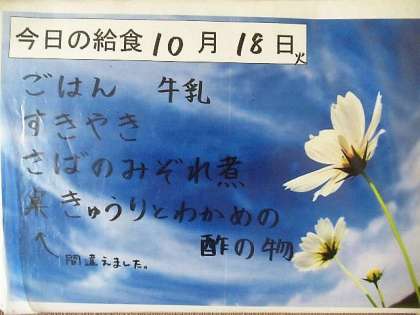 今日の給食10月18日火
ごはん 牛乳
すきやき
さばのみぞれ煮
きゅうりとわかめの
酢の物
↑間違えました。